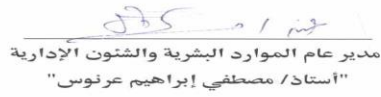 مدير عام الموارد البشرية والشئون الإدارية
"أستاذ/ مصطفي إبراهيم عرنوس"